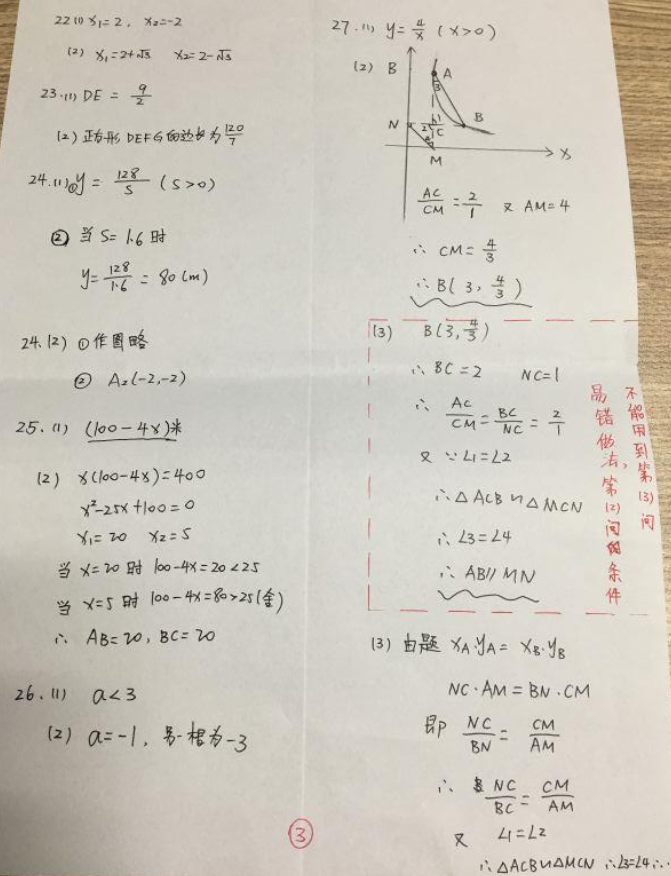 22(1) x₁=2, x₂=-2
(2) x₁=2+√3 x₂=2-√3
23.(1) DE = 9/2
(2) 正方形DEFG的边长为120/7
24.(1)① y = 128/S (S>0)
② 当 S=1.6 时
y=128/1.6 = 80(m)
24.(2) ①作图略
② A₂(-2,-2)
25.(1) (100-4x)米
(2) x(100-4x)=400
x²-25x+100=0
x₁=20 x₂=5
当 x=20 时 100-4x=20<25
当 x=5 时 100-4x=80>25(舍)
∴ AB=20, BC=20
26.(1) a<3
(2) a=-1, 另一根为-3
27.(1) y=4/x (x>0)
(2) B
A
3
N
2
1
C
B
4
M
x
AC/CM = 2/1 又 AM=4
∴ CM=4/3
∴ B(3, 4/3)
(3) B(3,4/3)
∴ BC=2 NC=1
∴ AC/CM = BC/NC = 2/1
又 ∵ ∠1=∠2
∴ △ACB∽△MCN
∴ ∠3=∠4
∴ AB∥MN
易错做法,第(2)问的条件
不能用到第(3)问
(3) 由题 x_A·y_A= x_B·y_B
NC·AM=BN·CM
即 NC/BN = CM/AM
∴ NC/BC = CM/AM
又 ∠1=∠2
∴ △ACB∽△MCN ∴∠3=∠4 ∴..
③